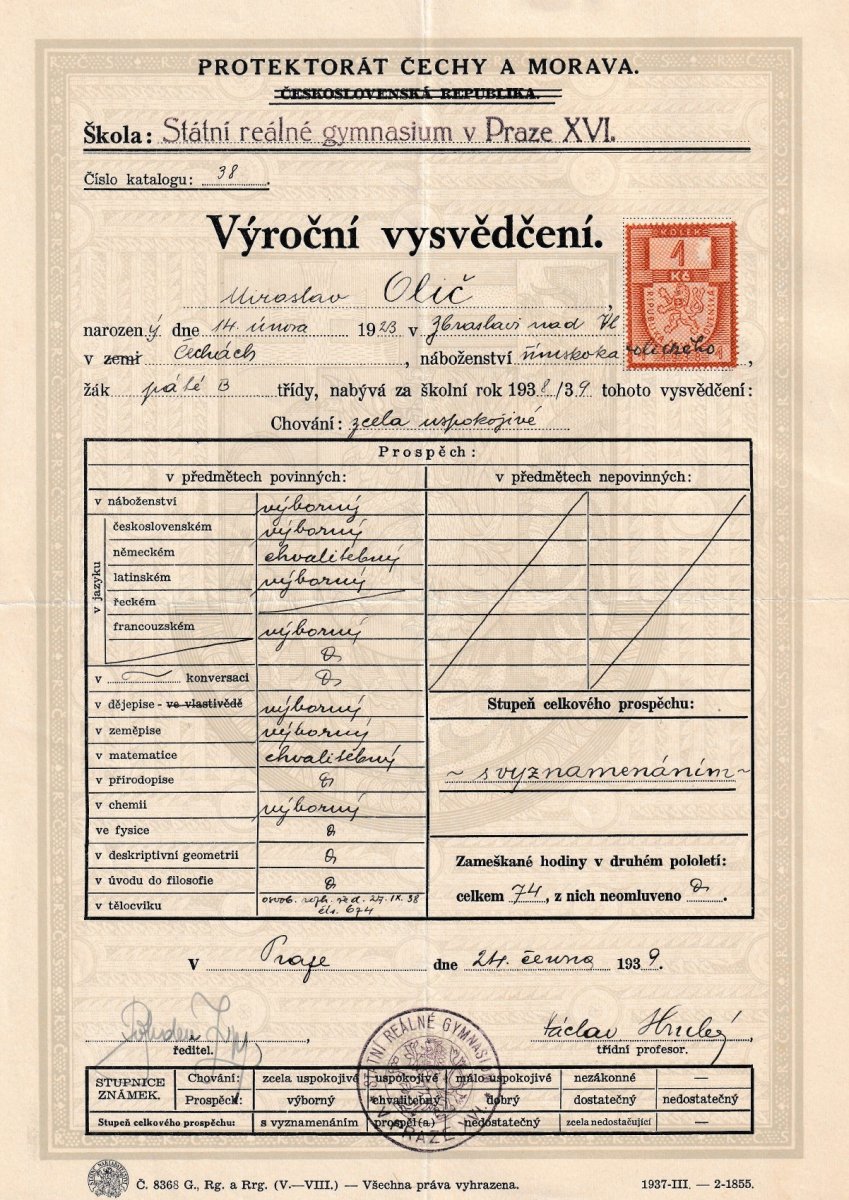 PROTEKTORÁT ČECHY A MORAVA.
ČESKOSLOVENSKÁ REPUBLIKA.
Škola: Státní reálné gymnasium v Praze XVI.
Číslo katalogu: 38.
Výroční vysvědčení.
KOLEK
1
Kč
Miroslav Olič,
narozený dne 14. února 1923 v Zbraslavi nad Vl
v zemi Čechách, náboženství římskokatolického,
žák páté B třídy, nabývá za školní rok 1938/39 tohoto vysvědčení:
Chování: zcela uspokojivé
Prospěch:
v předmětech povinných: v předmětech nepovinných:
v náboženství výborný
v jazyku
československém výborný
německém chvalitebný
latinském výborný
řeckém
francouzském výborný
v konversaci
v dějepise - ve vlastivědě výborný
Stupeň celkového prospěchu:
v zeměpise výborný
v matematice chvalitebný
~ s vyznamenáním ~
v přírodopise
v chemii výborný
ve fysice
v deskriptivní geometrii
Zameškané hodiny v druhém pololetí:
v úvodu do filosofie
celkem 74, z nich neomluveno
v tělocviku osvob. rozh. řed. 27. IX. 38
čís. 674
V Praze dne 24. června 1939.
Václav Hrubý
ředitel. třídní profesor.
STÁTNÍ REÁLNÉ GYMNASIUM
V PRAZE XVI.
STUPNICE ZNÁMEK.
Chování: zcela uspokojivé uspokojivé málo uspokojivé nezákonné —
Prospěch: výborný chvalitebný dobrý dostatečný nedostatečný
Stupeň celkového prospěchu: s vyznamenáním prospěl(a) nedostatečný zcela nedostačující —
Č. 8368 G., Rg. a Rrg. (V.—VIII.) — Všechna práva vyhrazena. 1937-III. — 2-1855.